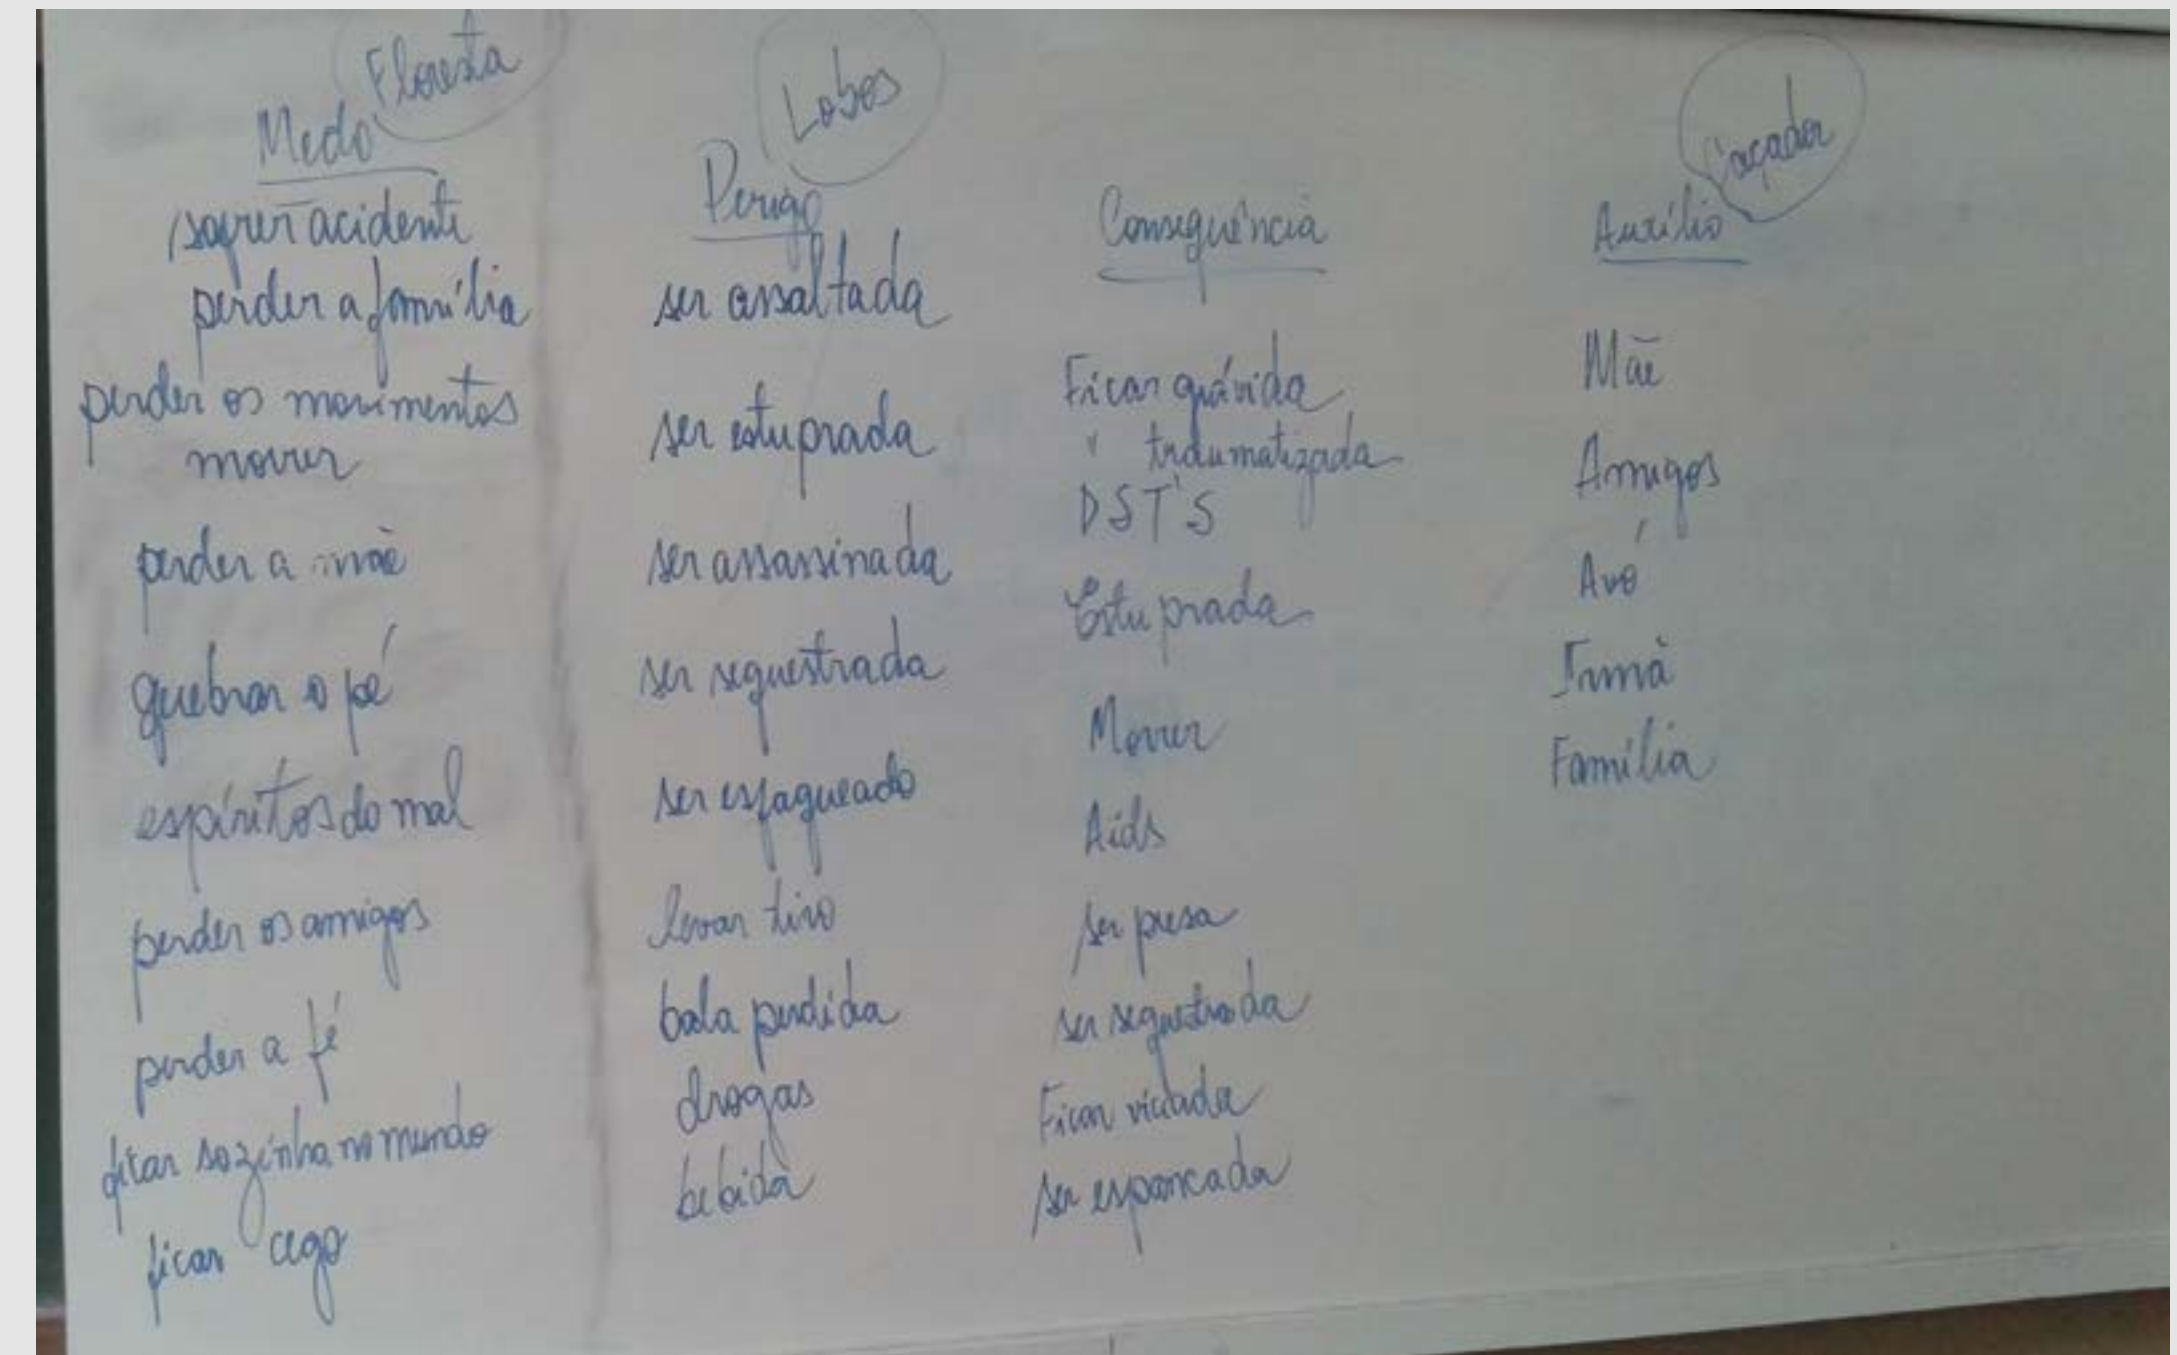 Floresta
Medo
sofrer acidente
perder a família
perder os movimentos
morrer
perder a mãe
quebrar o pé
espíritos do mal
perder os amigos
perder a fé
ficar sozinha no mundo
ficar cego
Lobos
Perigo
ser assaltada
ser estuprada
ser assassinada
ser sequestrada
ser esfaqueado
levar tiro
bala perdida
drogas
bebida
Consequência
Ficar grávida
" traumatizada
DST'S
Estuprada
Morrer
Aids
ser presa
ser sequestrada
Ficar viciada
ser espancada
Caçador
Auxílio
Mãe
Amigos
Avó
Irmã
Família